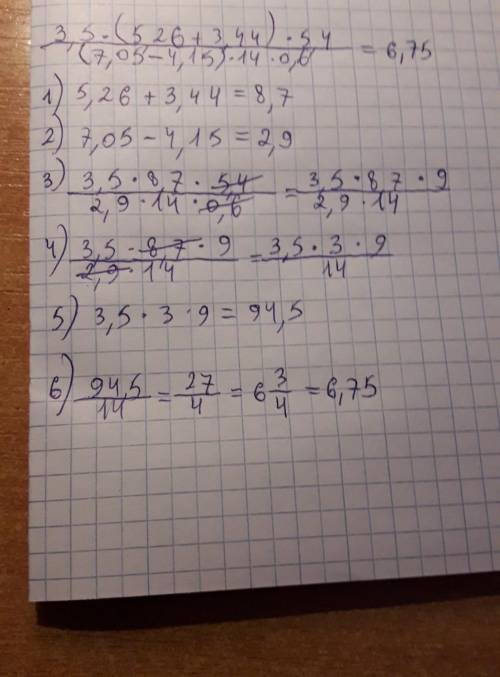 3,5·(5,26+3,44)·5,4 / (7,05-4,15)·14·0,6 = 6,75
1) 5,26+3,44=8,7
2) 7,05-4,15=2,9
3) 3,5·8,7·5,4 / 2,9·14·0,6 = 3,5·8,7·9 / 2,9·14
4) 3,5·8,7·9 / 2,9·14 = 3,5·3·9 / 14
5) 3,5·3·9=94,5
6) 94,5/14 = 27/4 = 6 3/4 = 6,75